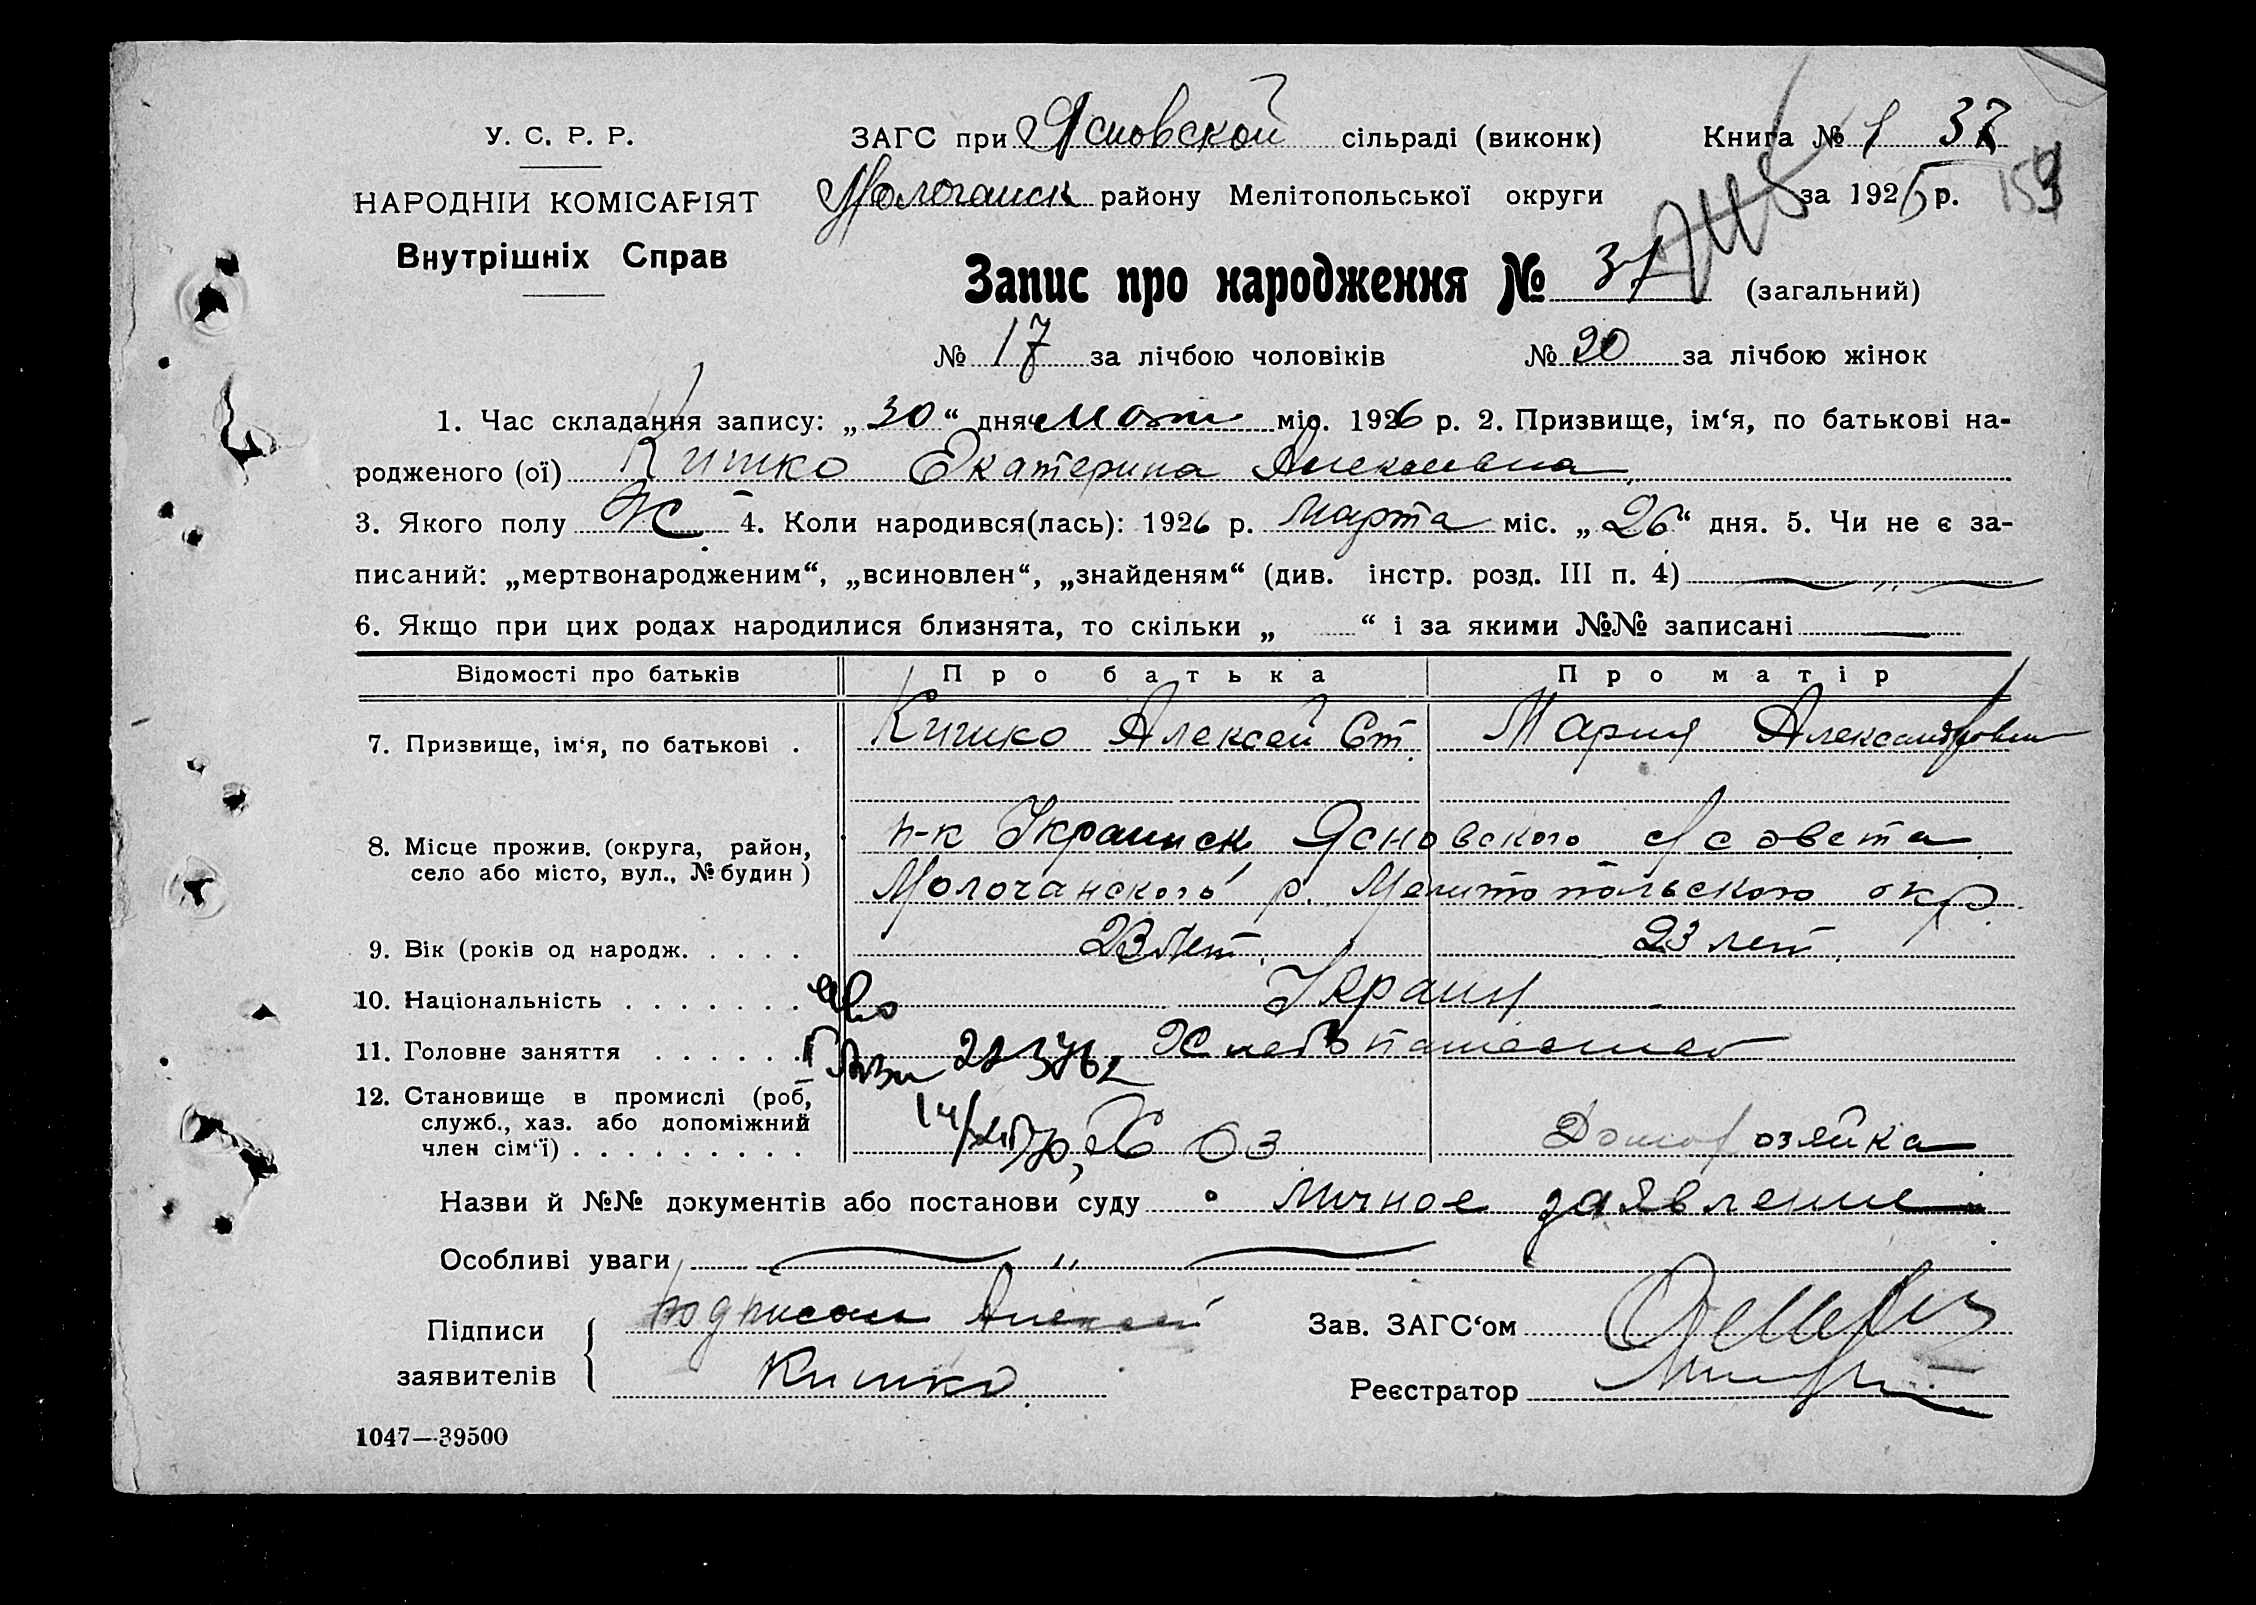 У. С. Р. Р.
НАРОДНІЙ КОМІСАРІЯТ
Внутрішніх Справ
ЗАГС при Ясновской сільраді (виконк) Книга № 1 37
Молочанск району Мелітопольської округи за 1926 р. 159
Запис про народження № 37 (загальний)
№ 17 за лічбою чоловіків № 20 за лічбою жінок
1. Час складання запису: „30“ дня міс. 1926 р. 2. Призвище, ім‘я, по батькові на-
родженого (ої) Кишко Екатерина Алексеевна
3. Якого полу Ж 4. Коли народився(лась): 1926 р. марта міс. „26“ дня. 5. Чи не є за-
писаний: „мертвонародженим“, „всиновлен“, „знайденям“ (див. інстр. розд. III п. 4)
6. Якщо при цих родах народилися близнята, то скільки „ “ і за якими №№ записані
Відомості про батьків Про батька Про матір
7. Призвище, ім‘я, по батькові . Кишко Алексей Ст. Мария Александровна
8. Місце прожив. (округа, район, п-к Украинск Ясновского с/совета
село або місто, вул., № будин) Молочанского р. Мелитопольского окр.
9. Вік (років од народж. . . . . 23 лет. 23 лет.
10. Національність . . . . . . . Украин
11. Головне заняття . . . . . . Хлебопашество
12. Становище в промислі (роб,
служб., хаз. або допоміжний
член сім‘ї) . . . . . . . . . Хоз Домохозяйка
Назви й №№ документів або постанови суду Личное заявление
Особливі уваги
Підписи
заявителів
подписал Алексей
Кишко
Зав. ЗАГС‘ом
Реєстратор
1047—39500